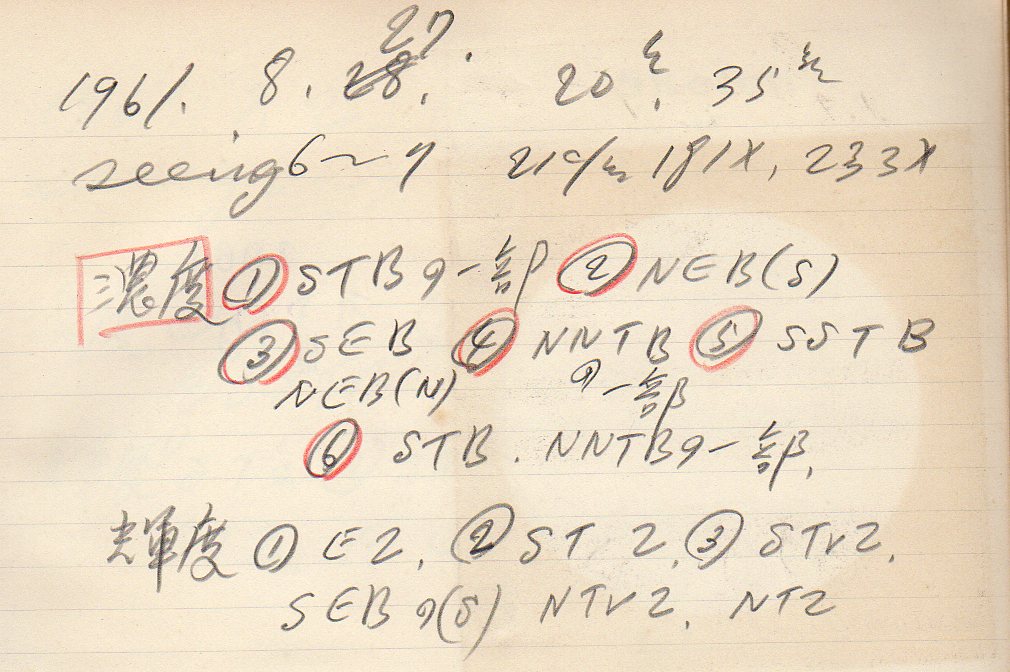 27.
1961. 8. 28. 20h. 35m
seeing 6~7 21cm 181X, 233X
濃度 ① STBの一部 ② NEB(S)
③ SEB ④ NNTB ⑤ SSTB
NEB(N) の一部
⑥ STB. NNTBの一部.
輝度 ① EZ. ② STZ. ③ STrZ.
SEBの(S) NTrZ. NTZ